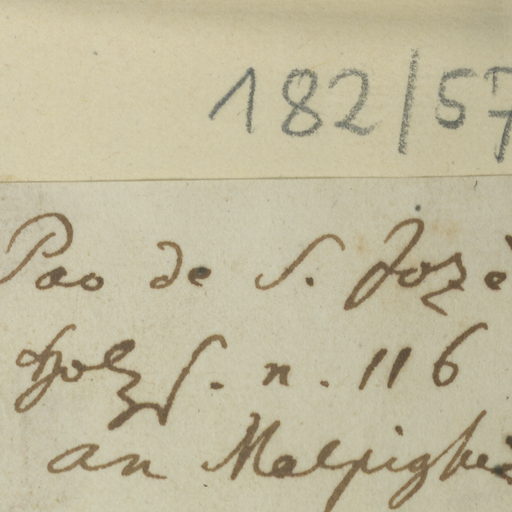 182/57
Pao de S. Jozè
Holz S. n. 116
an Malpighia